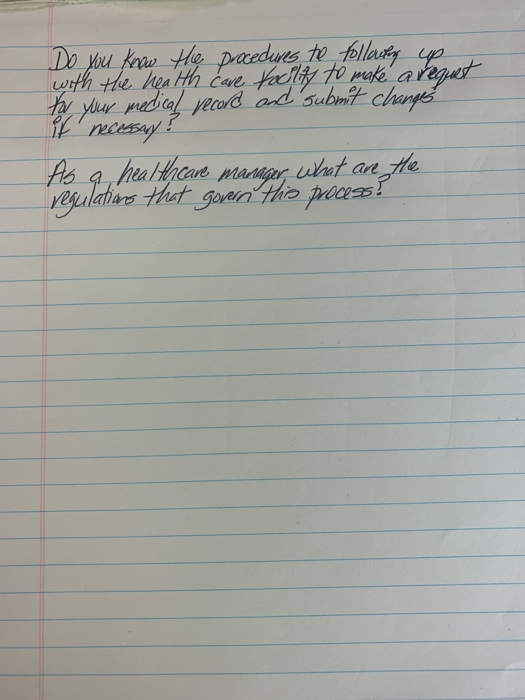 Do you know the procedures to following up
with the health care facility to make a request
for your medical record and submit changes
if necessary?
As a healthcare manager, what are the
regulations that govern this process?